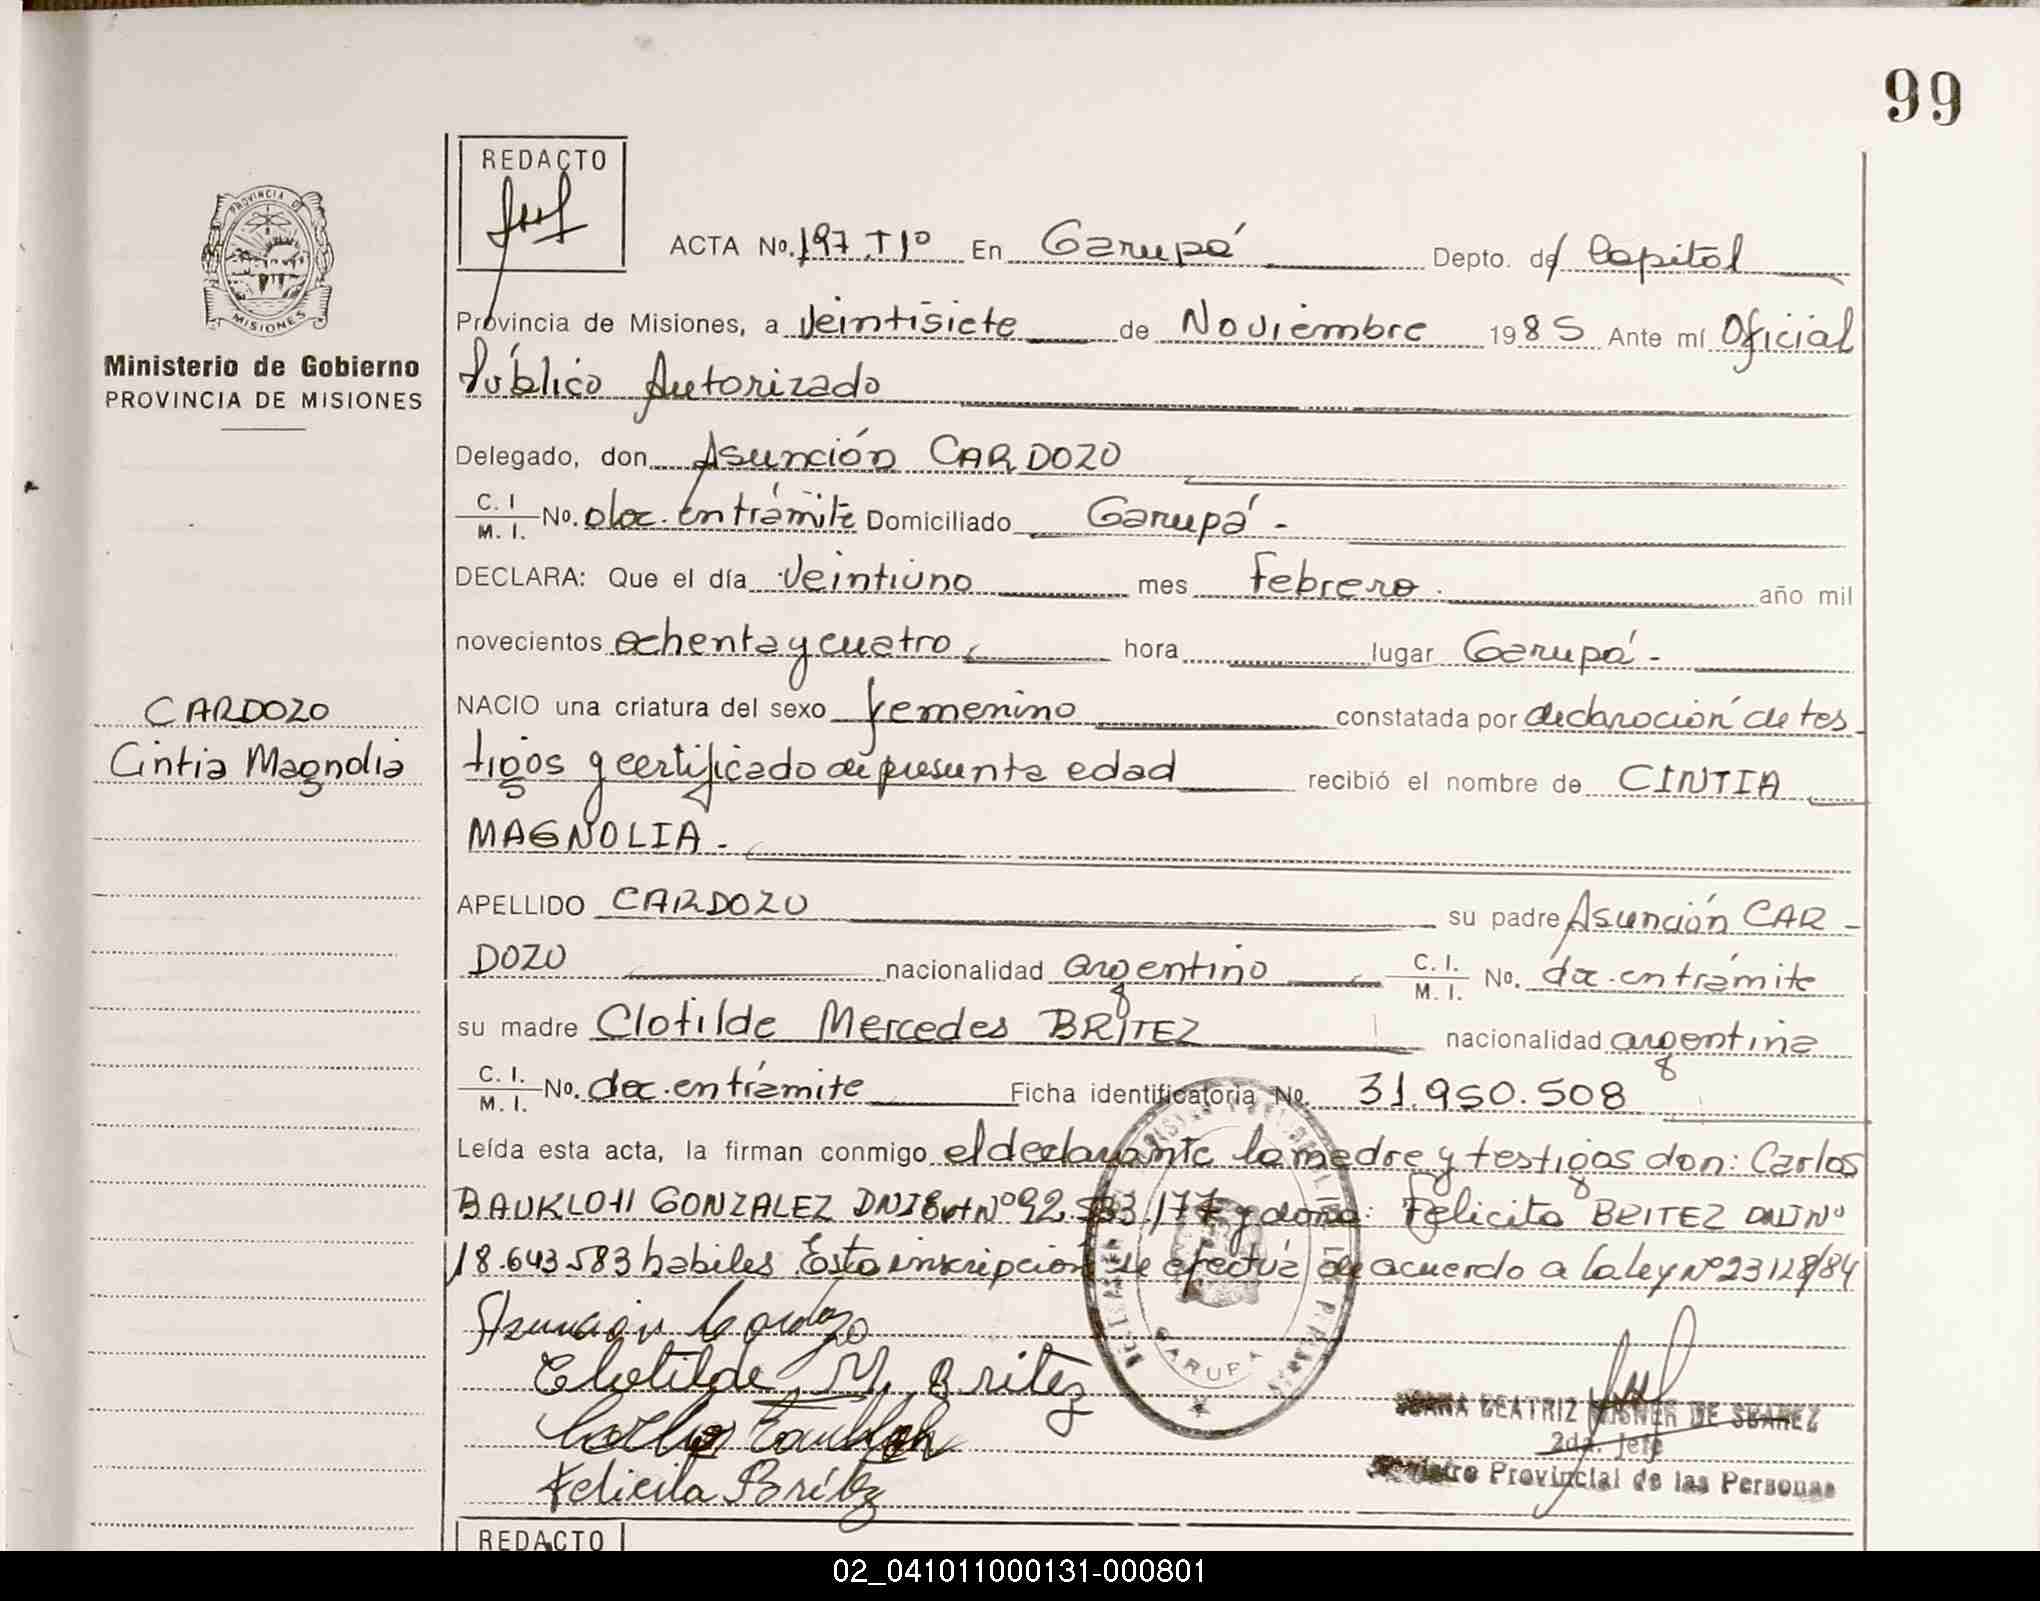 99
REDACTO
PROVINCIA DE
MISIONES
Ministerio de Gobierno
PROVINCIA DE MISIONES
ACTA No. 197 T1º En Garupá Depto. de Capital
Provincia de Misiones, a Veintisiete de Noviembre 1985 Ante mí Oficial
Público Autorizado
Delegado, don Asunción CARDOZO
C. I. M. I. No. doc. en trámite Domiciliado Garupá -
DECLARA: Que el día Veintiuno mes Febrero año mil
novecientos ochenta y cuatro hora lugar Garupá -
CARDOZO
Cintia Magnolia
NACIO una criatura del sexo femenino constatada por declaración de tes
tigos y certificado de presunta edad recibió el nombre de CINTIA
MAGNOLIA -
APELLIDO CARDOZO su padre Asunción CAR -
DOZO nacionalidad argentino C. I. M. I. No. doc. en trámite
su madre Clotilde Mercedes BRITEZ nacionalidad argentina
C. I. M. I. No. doc. en trámite Ficha identificatoria No. 31.950.508
Leída esta acta, la firman conmigo el declarante la madre y testigos don: Carlos
BAUKLOH GONZALEZ DNI Ext Nº 92.533.177 y doña: Felicita BRITEZ DNI Nº
18.643.583 habiles Esta inscripción se efectúa de acuerdo a la ley Nº 23128/84
Asunción Cardozo
Clotilde M. Britez
Carlos Baukloh
Felicita Britez
GARUPA
BEATRIZ DE
2da. Jefe
Registro Provincial de las Personas
REDACTO
02_041011000131-000801